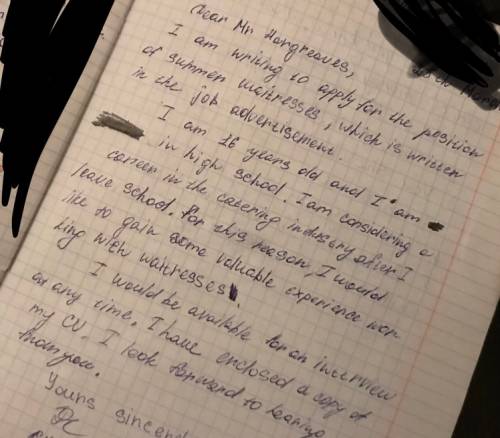 Dear Mr Hargreaves,
I am writing to apply for the position
of summer waitresses, which is written
in the job advertisement.
I am 16 years old and I am
in high school. I am considering a
career in the catering industry after I
leave school. For this reason, I would
like to gain some valuable experience wor
king with waitresses.
I would be available for an interview
an any time. I have enclosed a copy of
my CV. I look forward to hearing
from you.
Yours sincere